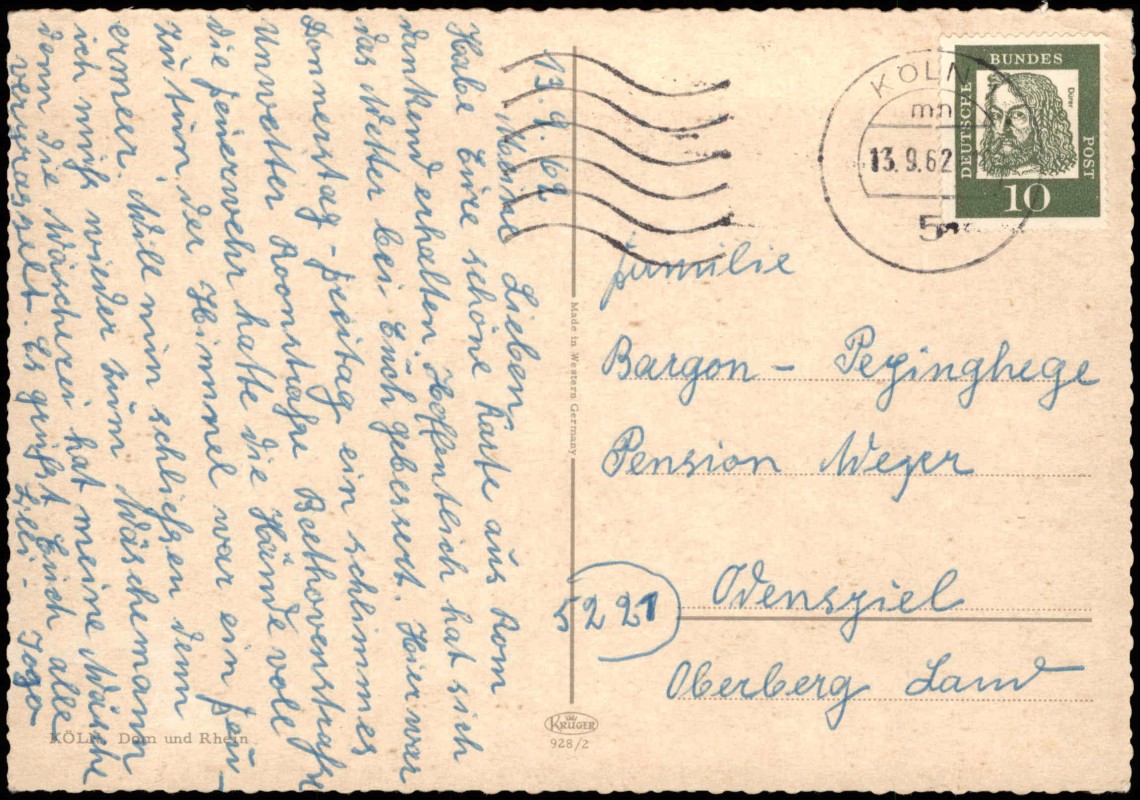 13.9.62
Meine Lieben,
Habe Eure schöne Karte aus Rom
dankend erhalten. Hoffentlich hat sich
das Wetter bei Euch gebessert. Hier war
Donnerstag-freitag ein schlimmes
Unwetter Roonstraße Beethovenstraße
die feuerwehr hatte die Hände voll
zu tun, der Himmel war ein feu-
ermeer. Will nun schließen denn
ich muß wieder zum Wäschemann
denn die Wäscherei hat meine Wäsche
verusselt. Es grüßt Euch alle
Lilli-
KÖLN Dom und Rhein
Made in Western Germany
KRÜGER
928/2
KÖLN
mn
13.9.62
5
BUNDES
DEUTSCHE
POST
Dürer
10
familie
Bargon - Peyinghege
Pension Weyer
5221
Odenspiel
Oberberg Land